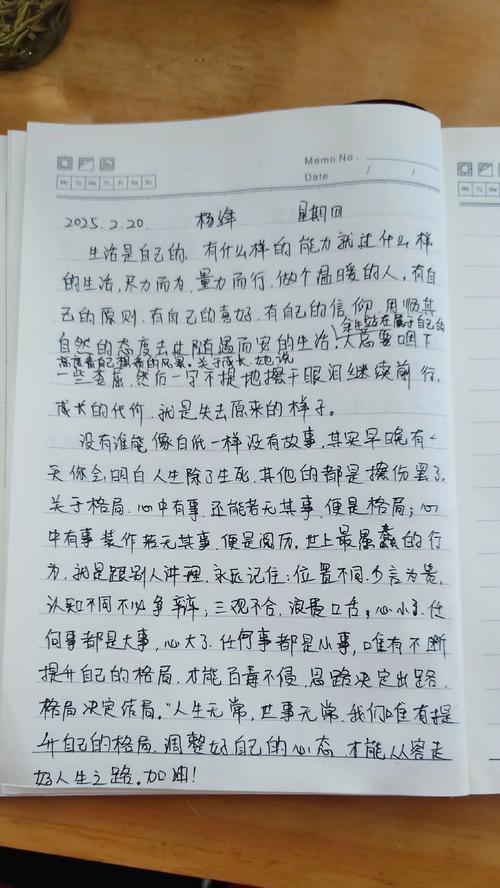 Memo No.
Date / /
Mo Tu We Th Fr Sa Su
2025.2.20 杨绛 星期四
生活是自己的,有什么样的能力就过什么样
的生活,尽力而为,量力而行,做个温暖的人,有自
己的原则,有自己的喜好,有自己的信仰,用顺其
自然的态度去过随遇而安的生活,余生站在属于自己的
高度看自己想看的风景。关于成长,她说
人总要咽下
一些委屈,然后一字不提地擦干眼泪继续前行,
成长的代价,就是失去原来的样子。
没有谁能像白纸一样没有故事,其实早晚有一
天你会明白人生除了生死,其他的都是擦伤罢了。
关于格局,心中有事,还能若无其事,便是格局;心
中有事装作若无其事,便是阅历。世上最愚蠢的行
为,就是跟别人讲理,永远记住:位置不同,少言为贵,
认知不同不必争辩;三观不合,浪费口舌;心小了,任
何事都是大事,心大了,任何事都是小事,唯有不断
提升自己的格局,才能百毒不侵,思路决定出路,
格局决定结局。"人生无常,世事无常,我们唯有提
升自己的格局,调整好自己的心态,才能从容走
好人生之路。加油!